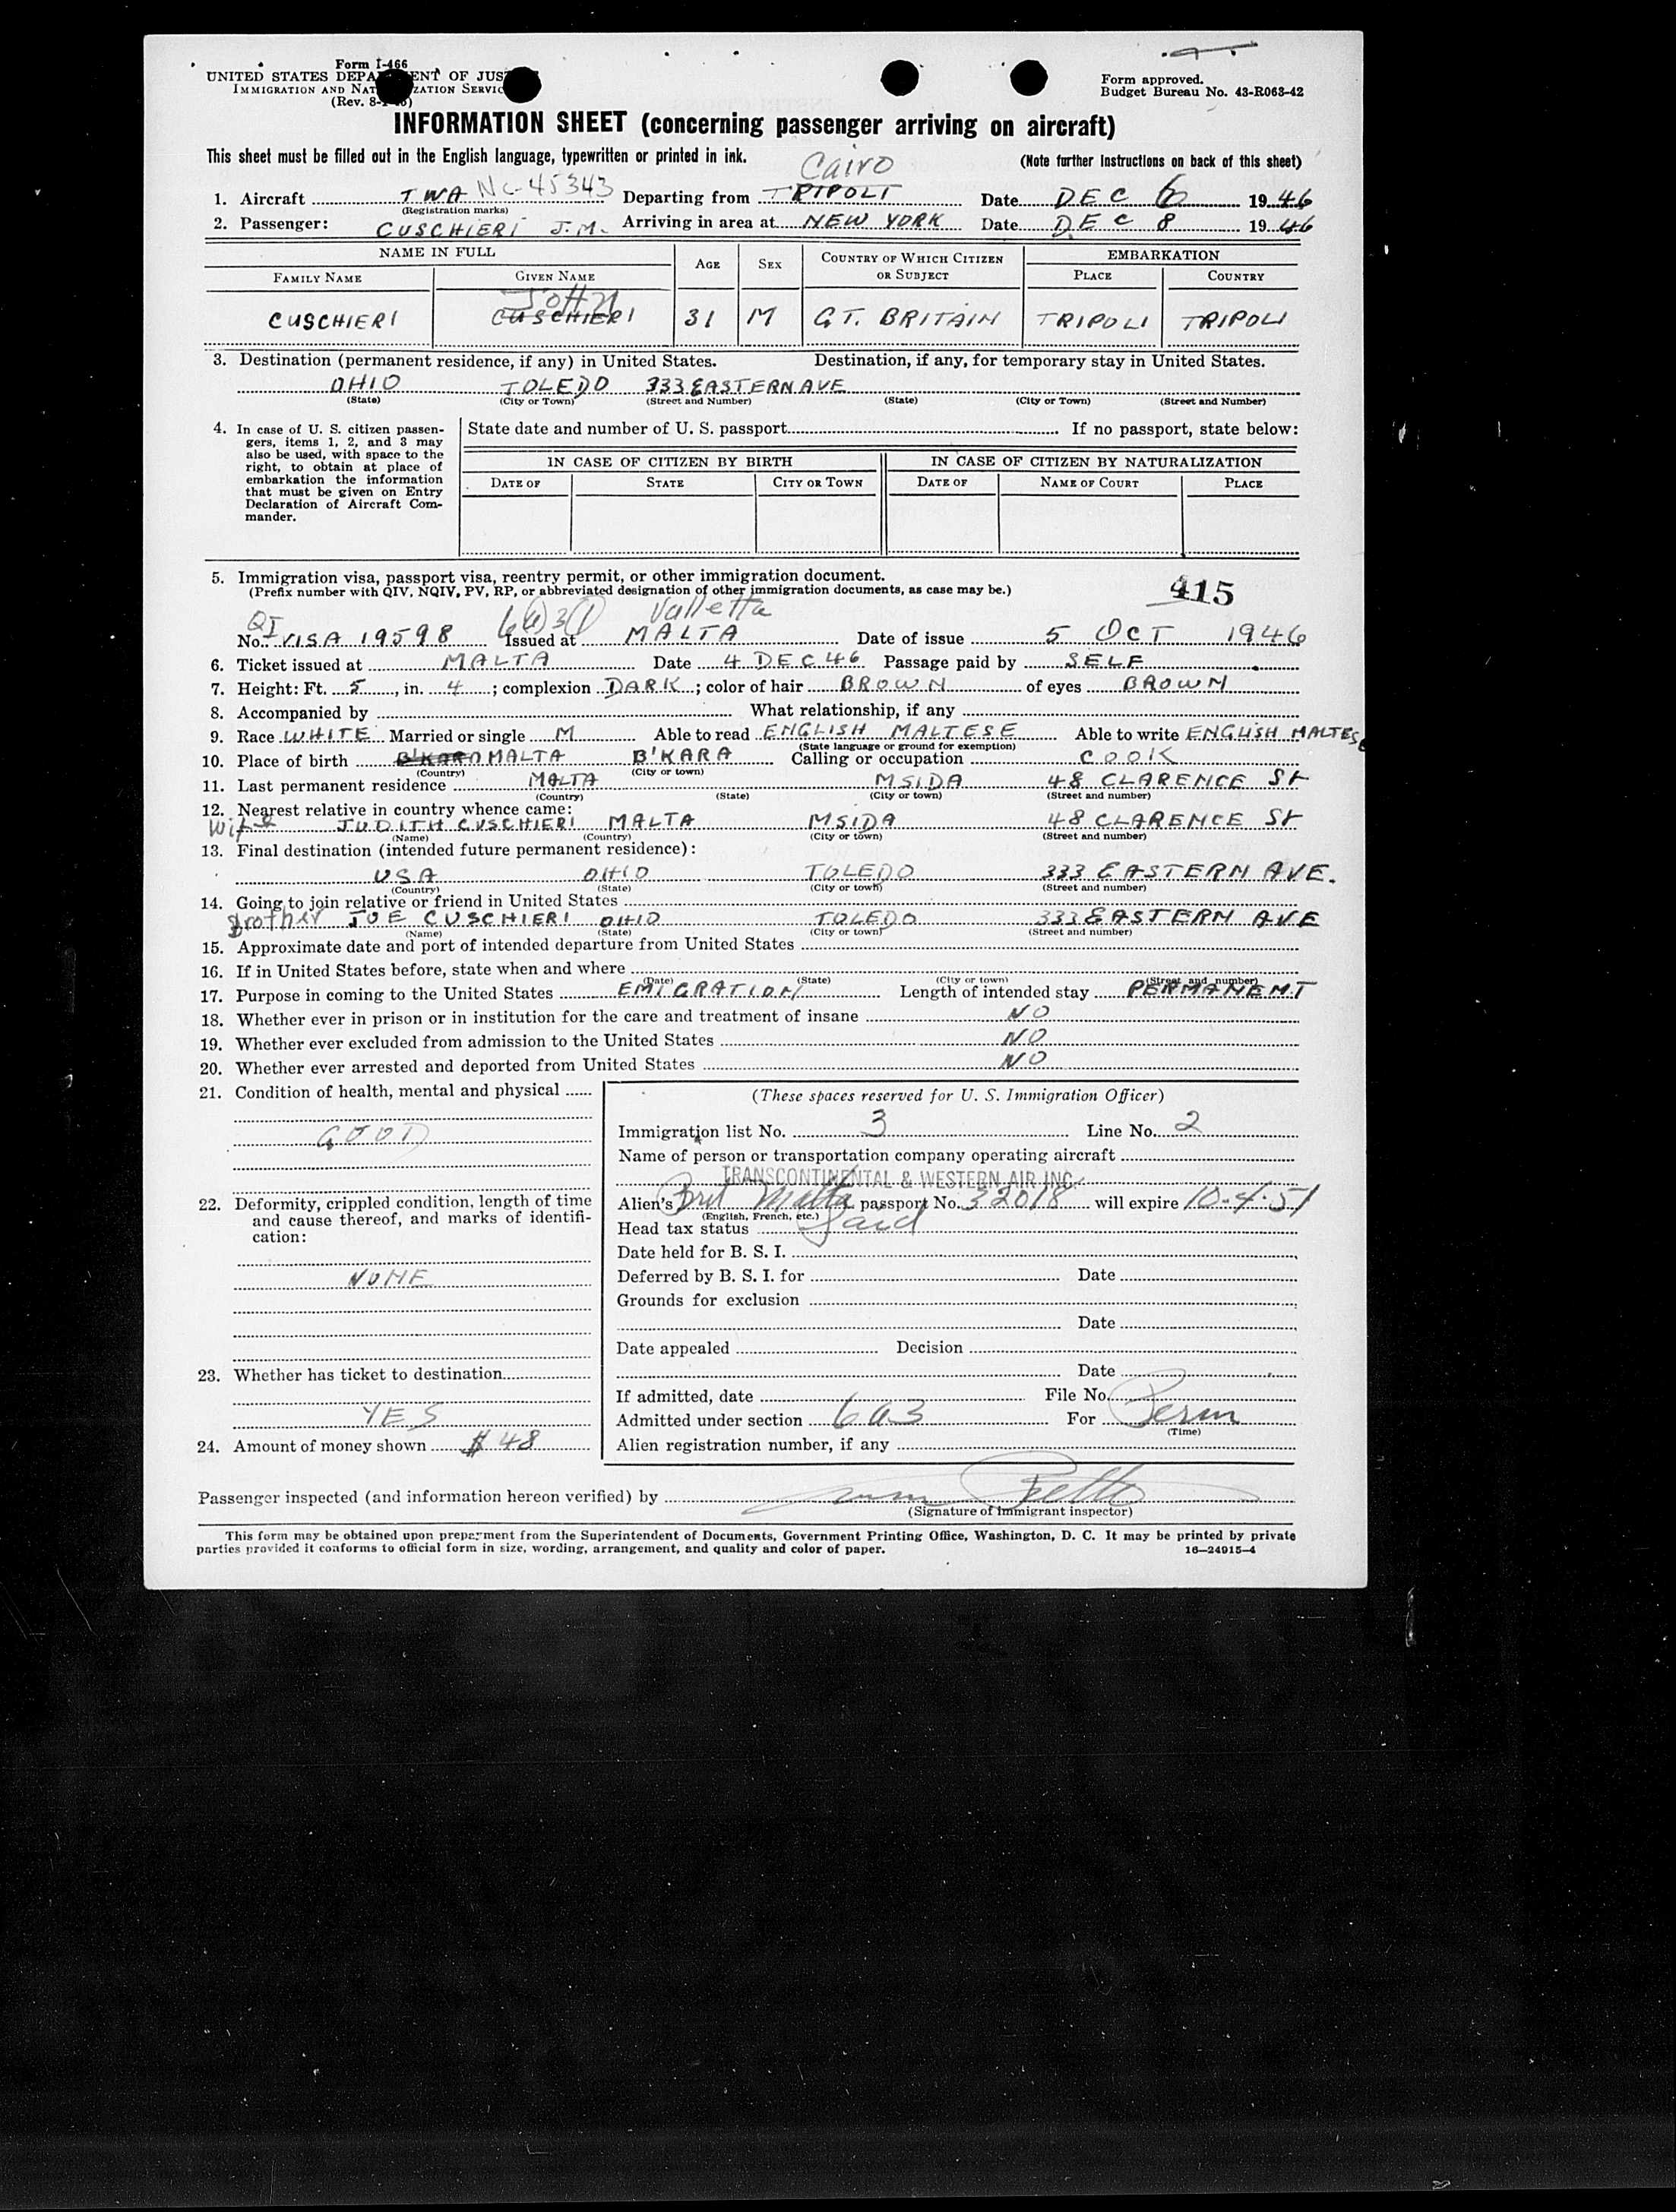 Form I-466
UNITED STATES DEPA ENT OF JUS
IMMIGRATION AND NAT ZATION SERVIC
(Rev. 8-
Form approved.
Budget Bureau No. 43-R063-42
INFORMATION SHEET (concerning passenger arriving on aircraft)
This sheet must be filled out in the English language, typewritten or printed in ink.
(Note further instructions on back of this sheet)
Cairo
1. Aircraft TWA NC-45343 Departing from TRIPOLI Date DEC 6 1946
(Registration marks)
2. Passenger: CUSCHIERI J.M. Arriving in area at NEW YORK Date DEC 8 1946
NAME IN FULL AGE SEX COUNTRY OF WHICH CITIZEN OR SUBJECT EMBARKATION
FAMILY NAME GIVEN NAME PLACE COUNTRY
JOHN
CUSCHIERI CUSCHIERI 31 M GT. BRITAIN TRIPOLI TRIPOLI
3. Destination (permanent residence, if any) in United States. Destination, if any, for temporary stay in United States.
OHIO TOLEDO 333 EASTERN AVE
(State) (City or Town) (Street and Number) (State) (City or Town) (Street and Number)
4. In case of U. S. citizen passen-
gers, items 1, 2, and 3 may
also be used, with space to the
right, to obtain at place of
embarkation the information
that must be given on Entry
Declaration of Aircraft Com-
mander.
State date and number of U. S. passport If no passport, state below:
IN CASE OF CITIZEN BY BIRTH IN CASE OF CITIZEN BY NATURALIZATION
DATE OF STATE CITY OR TOWN DATE OF NAME OF COURT PLACE
5. Immigration visa, passport visa, reentry permit, or other immigration document.
(Prefix number with QIV, NQIV, PV, RP, or abbreviated designation of other immigration documents, as case may be.)
415
QI 6(a)3(1) Valletta
No. VISA 19598 Issued at MALTA Date of issue 5 OCT 1946
6. Ticket issued at MALTA Date 4 DEC 46 Passage paid by SELF
7. Height: Ft. 5, in. 4; complexion DARK; color of hair BROWN of eyes BROWN
8. Accompanied by What relationship, if any
9. Race WHITE Married or single M Able to read ENGLISH MALTESE Able to write ENGLISH MALTESE
(State language or ground for exemption)
10. Place of birth B'KARA MALTA B'KARA Calling or occupation COOK
(Country) (City or town)
11. Last permanent residence MALTA MSIDA 48 CLARENCE St
(Country) (State) (City or town) (Street and number)
12. Nearest relative in country whence came:
Wife JUDITH CUSCHIERI MALTA MSIDA 48 CLARENCE St
(Name) (Country) (City or town) (Street and number)
13. Final destination (intended future permanent residence):
USA OHIO TOLEDO 333 EASTERN AVE.
(Country) (State) (City or town) (Street and number)
14. Going to join relative or friend in United States
Brother JOE CUSCHIERI OHIO TOLEDO 333 EASTERN AVE
(Name) (State) (City or town) (Street and number)
15. Approximate date and port of intended departure from United States
16. If in United States before, state when and where
(Date) (State) (City or town) (Street and number)
17. Purpose in coming to the United States EMIGRATION Length of intended stay PERMANENT
18. Whether ever in prison or in institution for the care and treatment of insane NO
19. Whether ever excluded from admission to the United States NO
20. Whether ever arrested and deported from United States NO
21. Condition of health, mental and physical
GOOD
22. Deformity, crippled condition, length of time
and cause thereof, and marks of identifi-
cation:
NONE
23. Whether has ticket to destination
YES
24. Amount of money shown $ 48
(These spaces reserved for U. S. Immigration Officer)
Immigration list No. 3 Line No. 2
Name of person or transportation company operating aircraft
TRANSCONTINENTAL & WESTERN AIR INC.
Alien's Brit Malta passport No. 32018 will expire 10-4-51
(English, French, etc.)
Head tax status Paid
Date held for B. S. I.
Deferred by B. S. I. for Date
Grounds for exclusion
Date
Date appealed Decision
Date
If admitted, date File No.
Admitted under section 6a3 For Perm
(Time)
Alien registration number, if any
Passenger inspected (and information hereon verified) by
(Signature of immigrant inspector)
This form may be obtained upon prepayment from the Superintendent of Documents, Government Printing Office, Washington, D. C. It may be printed by private
parties provided it conforms to official form in size, wording, arrangement, and quality and color of paper. 16—24915-4